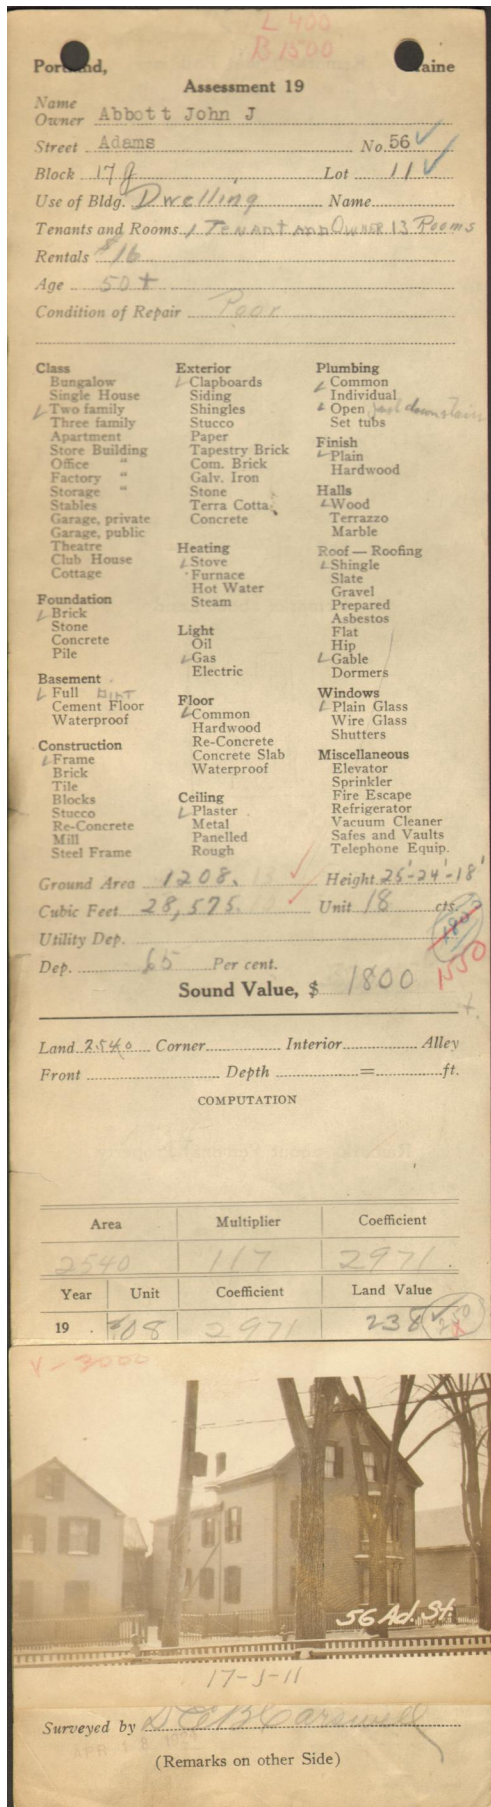 L 400
B 1500
Portland, Maine
Assessment 19
Name
Owner Abbott John J
Street Adams No. 56 ✓
Block 17 J Lot 11 ✓
Use of Bldg. Dwelling Name
Tenants and Rooms 1 Tenant and Owner 13 Rooms
Rentals $16
Age 50+
Condition of Repair Poor
Class
Bungalow
Single House
✓ Two family
Three family
Apartment
Store Building
Office "
Factory "
Storage "
Stables
Garage, private
Garage, public
Theatre
Club House
Cottage
Foundation
✓ Brick
Stone
Concrete
Pile
Basement
✓ Full Dirt
Cement Floor
Waterproof
Construction
✓ Frame
Brick
Tile
Blocks
Stucco
Re-Concrete
Mill
Steel Frame
Exterior
✓ Clapboards
Siding
Shingles
Stucco
Paper
Tapestry Brick
Com. Brick
Galv. Iron
Stone
Terra Cotta
Concrete
Heating
✓ Stove
Furnace
Hot Water
Steam
Light
Oil
✓ Gas
Electric
Floor
✓ Common
Hardwood
Re-Concrete
Concrete Slab
Waterproof
Ceiling
✓ Plaster
Metal
Panelled
Rough
Plumbing
✓ Common
Individual
✓ Open just downstairs
Set tubs
Finish
✓ Plain
Hardwood
Halls
✓ Wood
Terrazzo
Marble
Roof — Roofing
✓ Shingle
Slate
Gravel
Prepared
Asbestos
Flat
Hip
✓ Gable
Dormers
Windows
✓ Plain Glass
Wire Glass
Shutters
Miscellaneous
Elevator
Sprinkler
Fire Escape
Refrigerator
Vacuum Cleaner
Safes and Vaults
Telephone Equip.
Ground Area 1208. ✓ Height 25'-24'-18'
Cubic Feet 28,575. ✓ Unit 18 cts.
Utility Dep. 1800
Dep. 65 Per cent. 1550
Sound Value, $ 1800
Land 2540 Corner Interior Alley
Front Depth = ft.
COMPUTATION
Area Multiplier Coefficient
2540 117 2971.
Year Unit Coefficient Land Value
19 .08 2971 238 ✓ 250
V-3000
56 Ad. St.
17-J-11
Surveyed by
(Remarks on other Side)